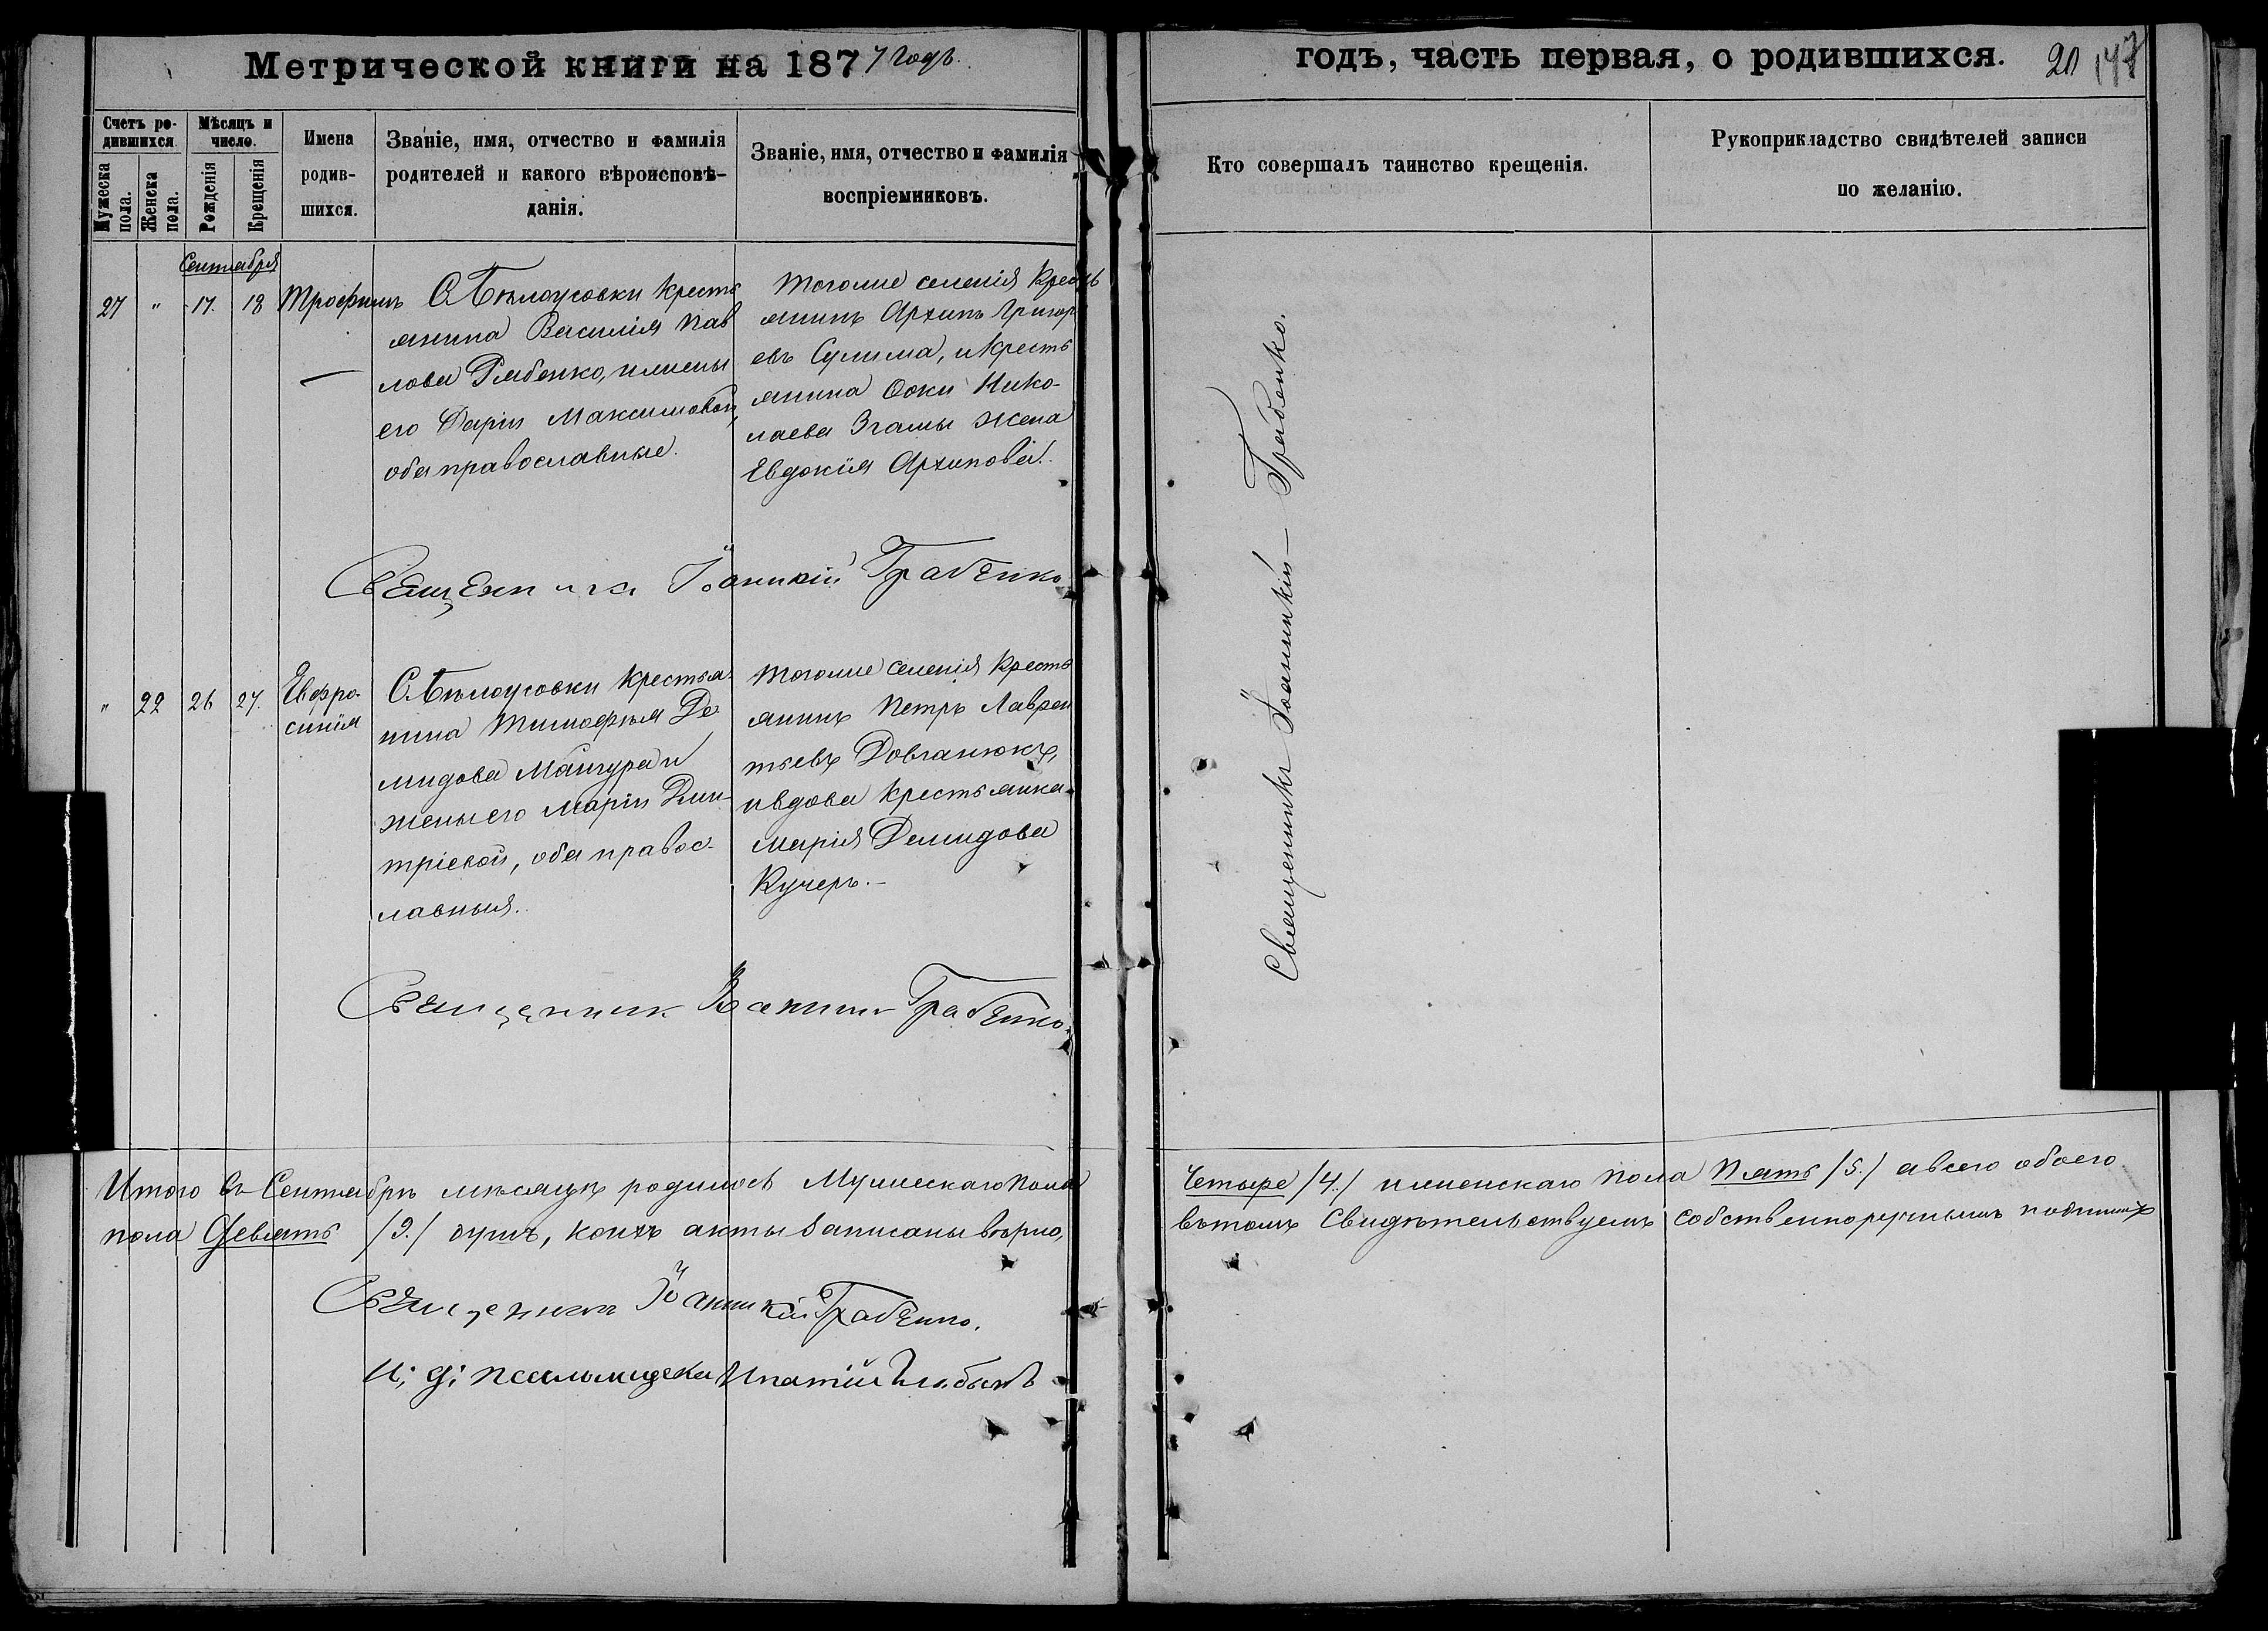 Метрической книги на 187 7 годъ.
годъ, часть первая, о родившихся.
20 147
Счетъ ро-
дившихся.
Мужеска
пола.
Женска
пола.
Мѣсяцъ и
число.
Рожденія
Крещенія
Имена
родив-
шихся.
Званіе, имя, отчество и фамилія
родителей и какого вѣроисповѣ-
данія.
Званіе, имя, отчество и фамилія
воспріемниковъ.
Кто совершалъ таинство крещенія.
Рукоприкладство свидѣтелей записи
по желанію.
Сентября
27 " 17. 18 Трофимъ
С Бѣлоусовки кресть
янина Василія Пав
лова Рябенко, и жены
его Даріи Максимовой,
оба православные.
Того же селенія Кресть
янинъ Архипъ Григор
евъ Сулима, и кресть
янина Фоки Нико-
лаева Згамы жена
Евдокія Архипова.
Священникъ Іоанникій Грабенко
" 22 26 27. Евфро-
синія
С Бѣлоусовки крестья-
нина Тимофея Де
мидова Манзура и
жены его Маріи Дми-
тріевой, оба правос-
лавныя.
Того же селенія Кресть
янинъ Петръ Лаврен
тьевъ Довганюкъ,
и вдова крестьянка
Марія Демидова
Кучеръ.-
Священникъ Іоанникій Грабенко.
Священникъ Іоанникій Грабенко.
Итого въ Сентябрѣ мѣсяцѣ родилось Мужескаго пола
Четыре /4./ и женскаго пола Пять /5./ а всего обоего
пола Девять /9./ душъ, коихъ акты записаны вѣрно,
въ томъ Свидѣтельствуемъ собственноручнымъ подписомъ
Священникъ Іоанникій Грабенко.
И; д; псаломщика Ипатій